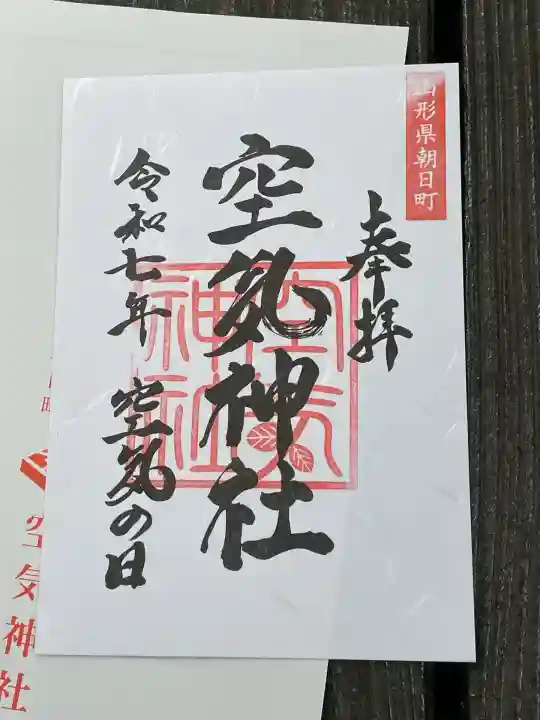 山形県朝日町
奉拝
空気神社
空気神社
令和七年 空気の日
空気神社